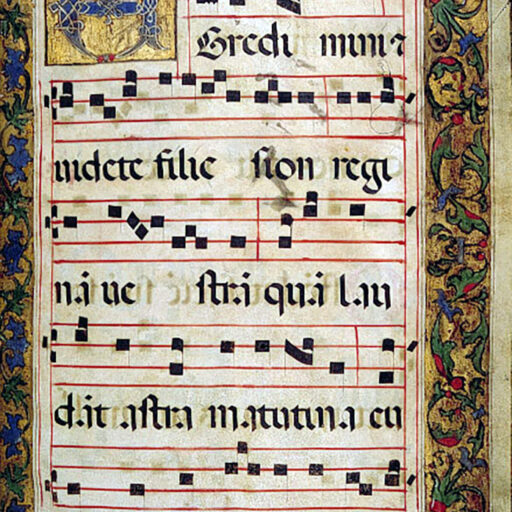 Gredimini et
uidete filie sion regi
nā ue strā quā lau
dāt astra matutina cu